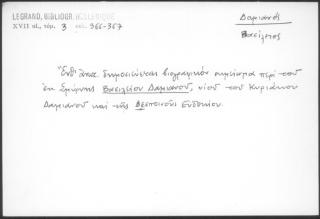 LEGRAND, BIBLIOGR. HELLENIQUE
XVII αἰ., τόμ. 3 σελ. 366-367
Δαμιανός
Βασίλειος
Ἐνθ' ἀνωτ. δημοσιεύεται βιογραφικόν σημείωμα περί τοῦ
ἐκ Σμύρνης Βασιλείου Δαμιανοῦ, υἱοῦ τοῦ Κυριάκου
Δαμιανοῦ καί τῆς Δεσποινοῦς